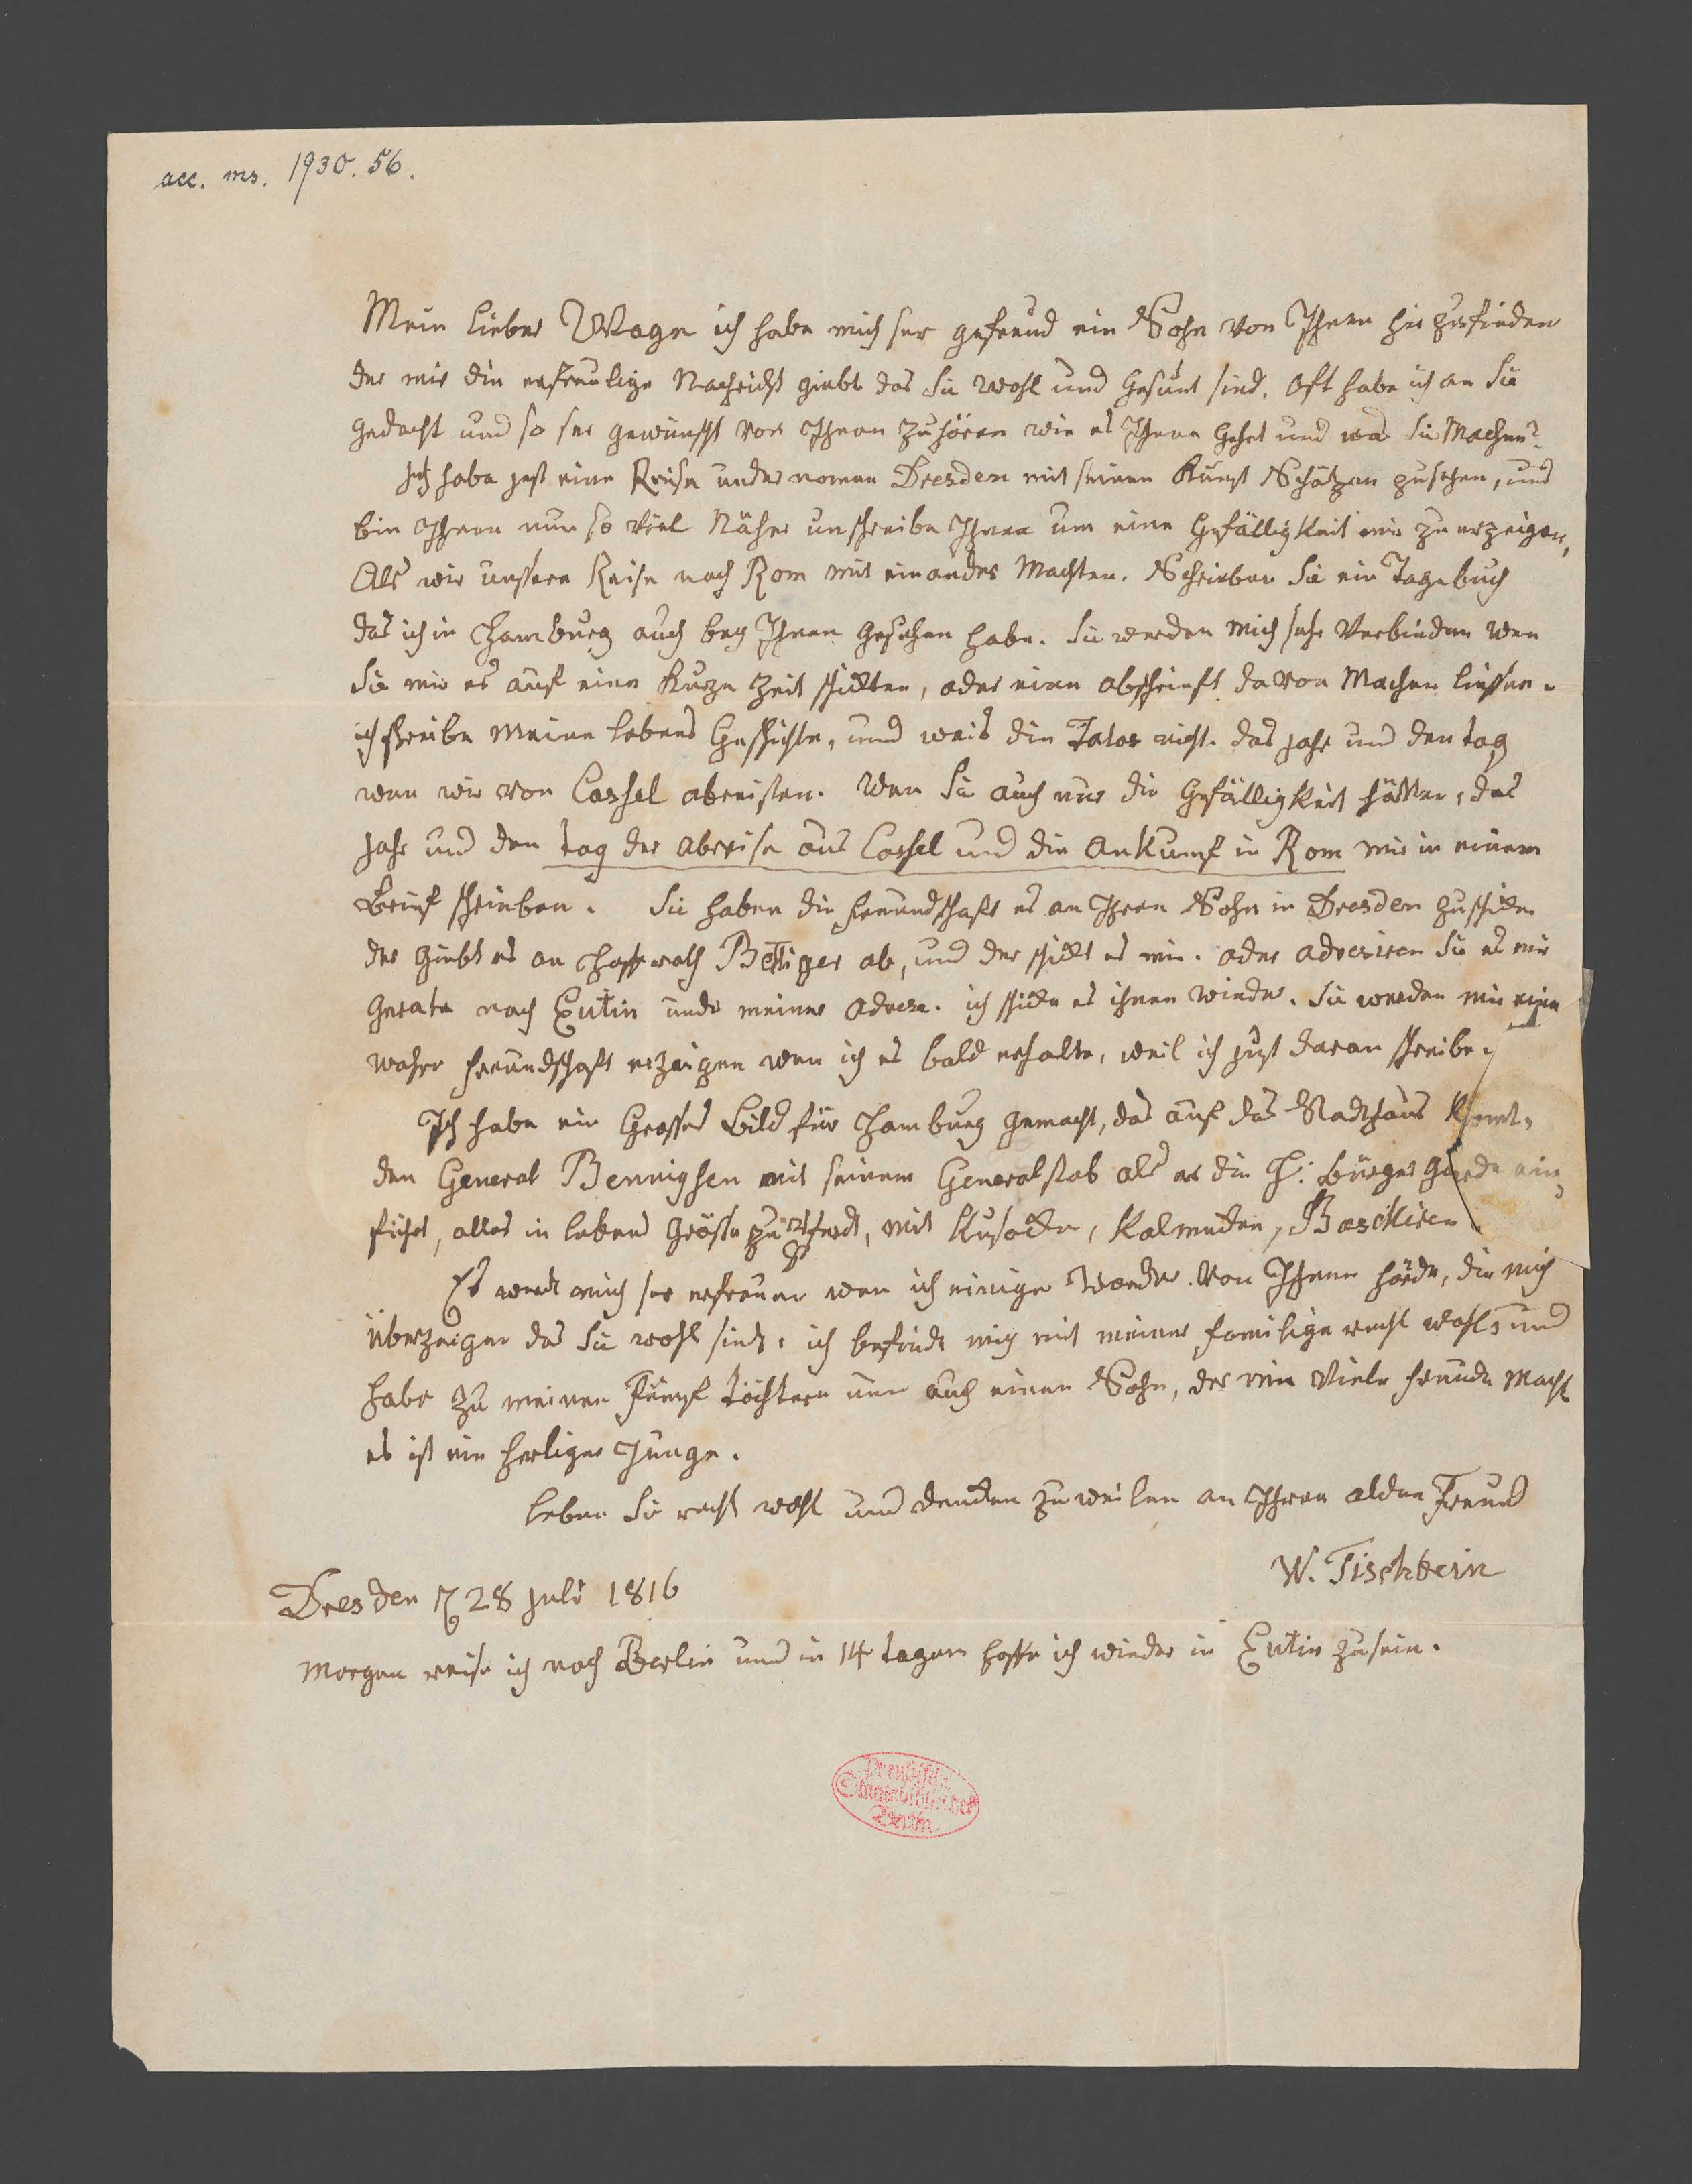 acc. ms. 1930. 56.
Mein lieber Wagn ich habe mich ser gefreud ein Sohn von Ihnen hir zufinden
der mir die erfreulige Nachricht giebt das Sie wohl und gesunt sind. oft habe ich an Sie
gedacht und so ser gewünscht von Ihnen zuhören wie es Ihnen gehet und was Sie Machen?
Ich habe jest eine Reise under nomen Dresden mit seinen Kunst Schätzen zusehen, und
bin Ihnen nun so viel Näher un schreibe Ihnen um eine Gefälligkeit mir zu erzeigen,
Als wir unssere Reise nach Rom mit einander Machten. Schrieben Sie ein Tagebuch
das ich in Hamburg auch bey Ihnen gesehen habe. Sie werden mich sehr Verbinden wen
Sie mir es auf eine Kurze Zeit schickten, oder eine abschrieft davon Machen liessen.
ich schreibe meine lebens Geschichte, und weis die Tatos nicht. das jahr und den tag
wen wir von Cassel abreisten. Wen Sie auch nur die Gefälligkeit hätten, das
jahr und den tag der abreise aus Cassel und die Ankunf in Rom mir in einem
Brief schrieben. Sie haben die freundschaft es an Ihren Sohn in Dresden zuschicken
der giebt es an Hoffrath Bettiger ab, und der schickt es mir. oder adresiren Sie es mir
gerate nach Eutin under meiner adrese. ich schicke es ihnen wieder. Sie werden mir eine
wahre freundschaft erzeigen wen ich es bald erhalte, weil ich just daran schreibe.
Ich habe ein Grosses Bild für Hamburg gemacht, das auf das Stadthaus Komt,
den General Bennigsen mit seinem Generalstab als er die H: bürger garde ein
führt, alles in lebens Grösse zu Pferdt, mit Kusacken, Kalmucken, Baschkiren
Es werdt mich ser erfreuen wen ich einige Worder von Ihnen hörde, die mich
überzeigen das Sie wohl sind. ich befinde mich mit meiner familige recht wohl, und
habe zu meinen fünf töchtern nun auch einen Sohn, der mir Viele freude Macht
es ist ein herliger Junge.
leben Sie recht wohl und dencken zuweilen an Ihren alden Freund
W. Tischbein
Dresden 28 juli 1816
Morgen reise ich nach Berlin und in 14 tagen hoffe ich wieder in Eutin zusein.
Preußische
Staatsbibliothek
Berlin